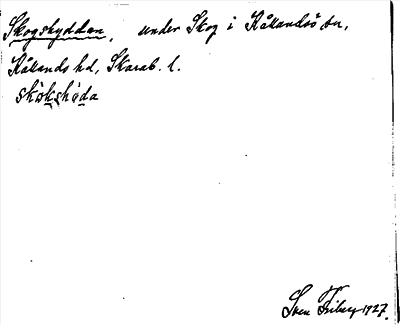 Skogshyddan, under Skog i Kållandsö sn,
Kållands hd, Skarab. l.
skòkshỳda
Sven Friberg 1927.